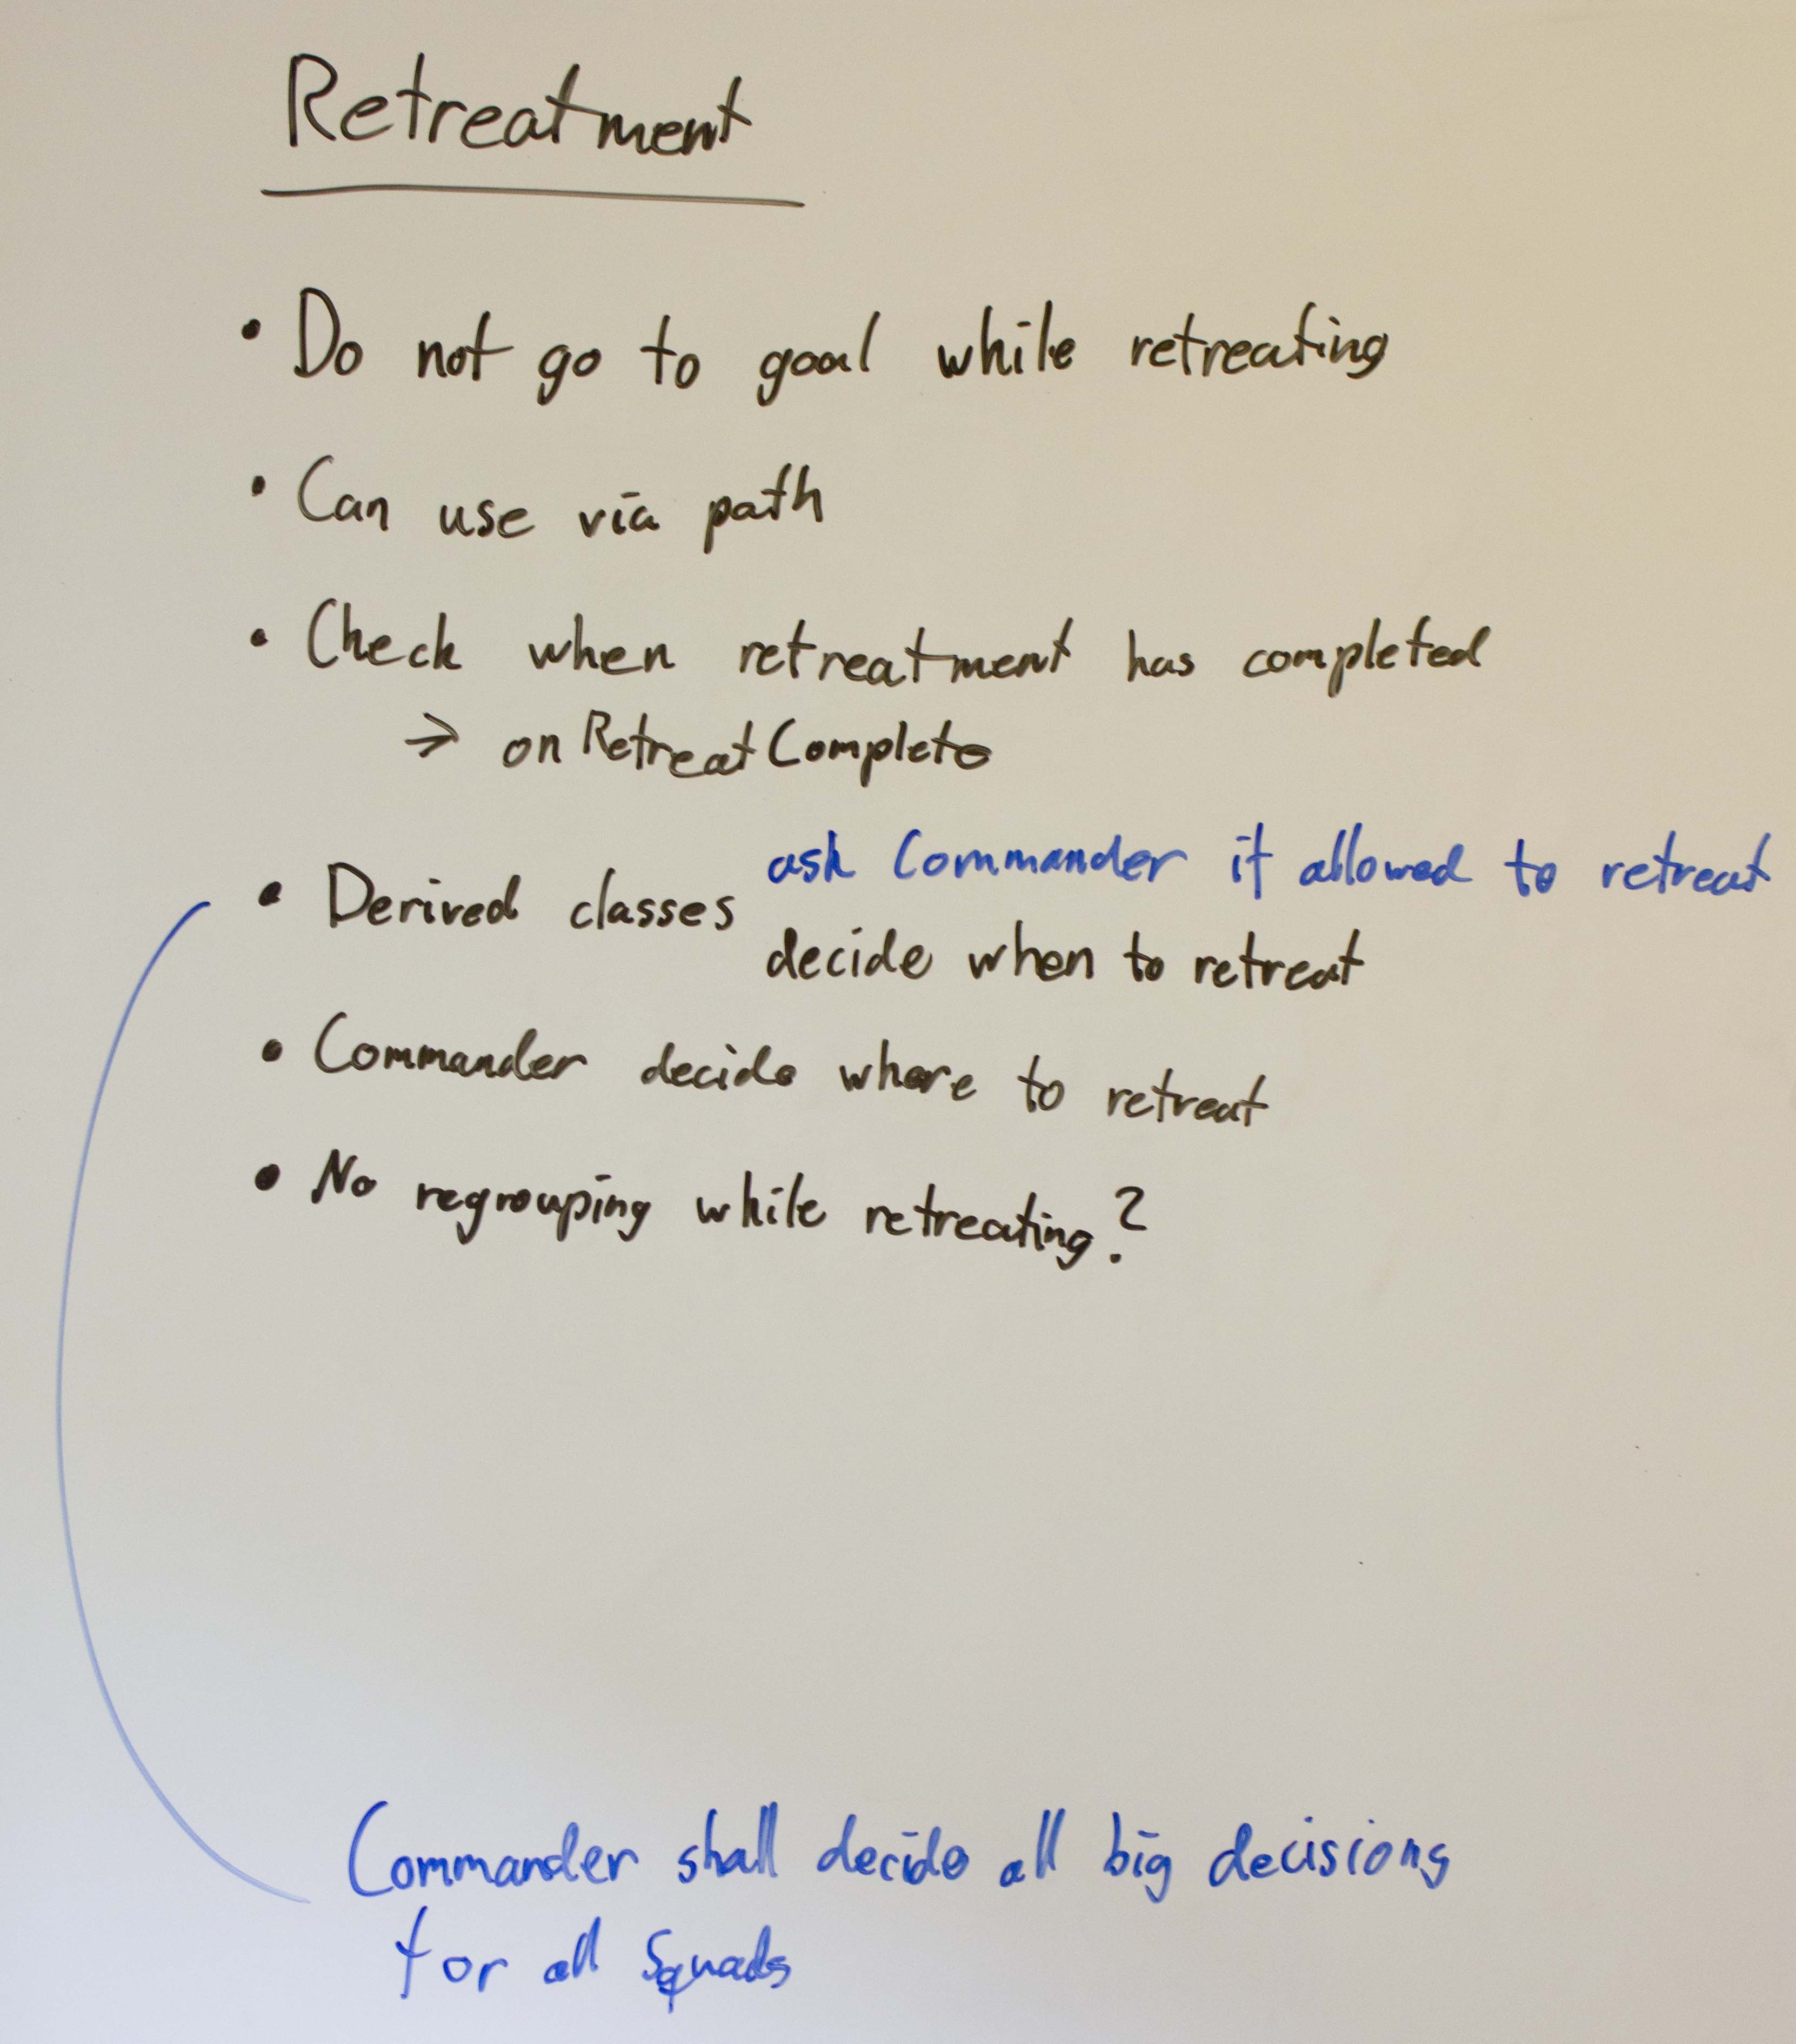 Retreatment
• Do not go to goal while retreating
• Can use via path
• Check when retreatment has completed
→ onRetreatComplete
ask Commander if allowed to retreat
• Derived classes
decide when to retreat
• Commander decide where to retreat
• No regrouping while retreating?
Commander shall decide all big decisions
for all Squads